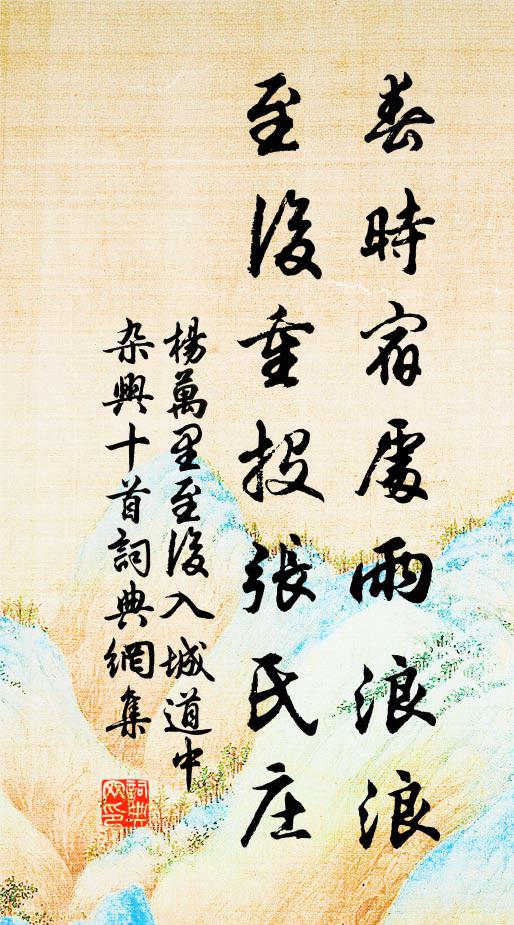 春時宿處雨浪浪
至後重投張氏庄
楊萬里至後入城道中
杂興十首詞典網集
詞典網印